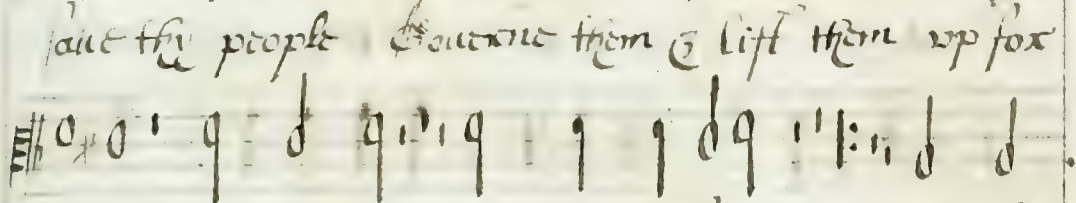 saue thy people Gouerne them & lift them vp for